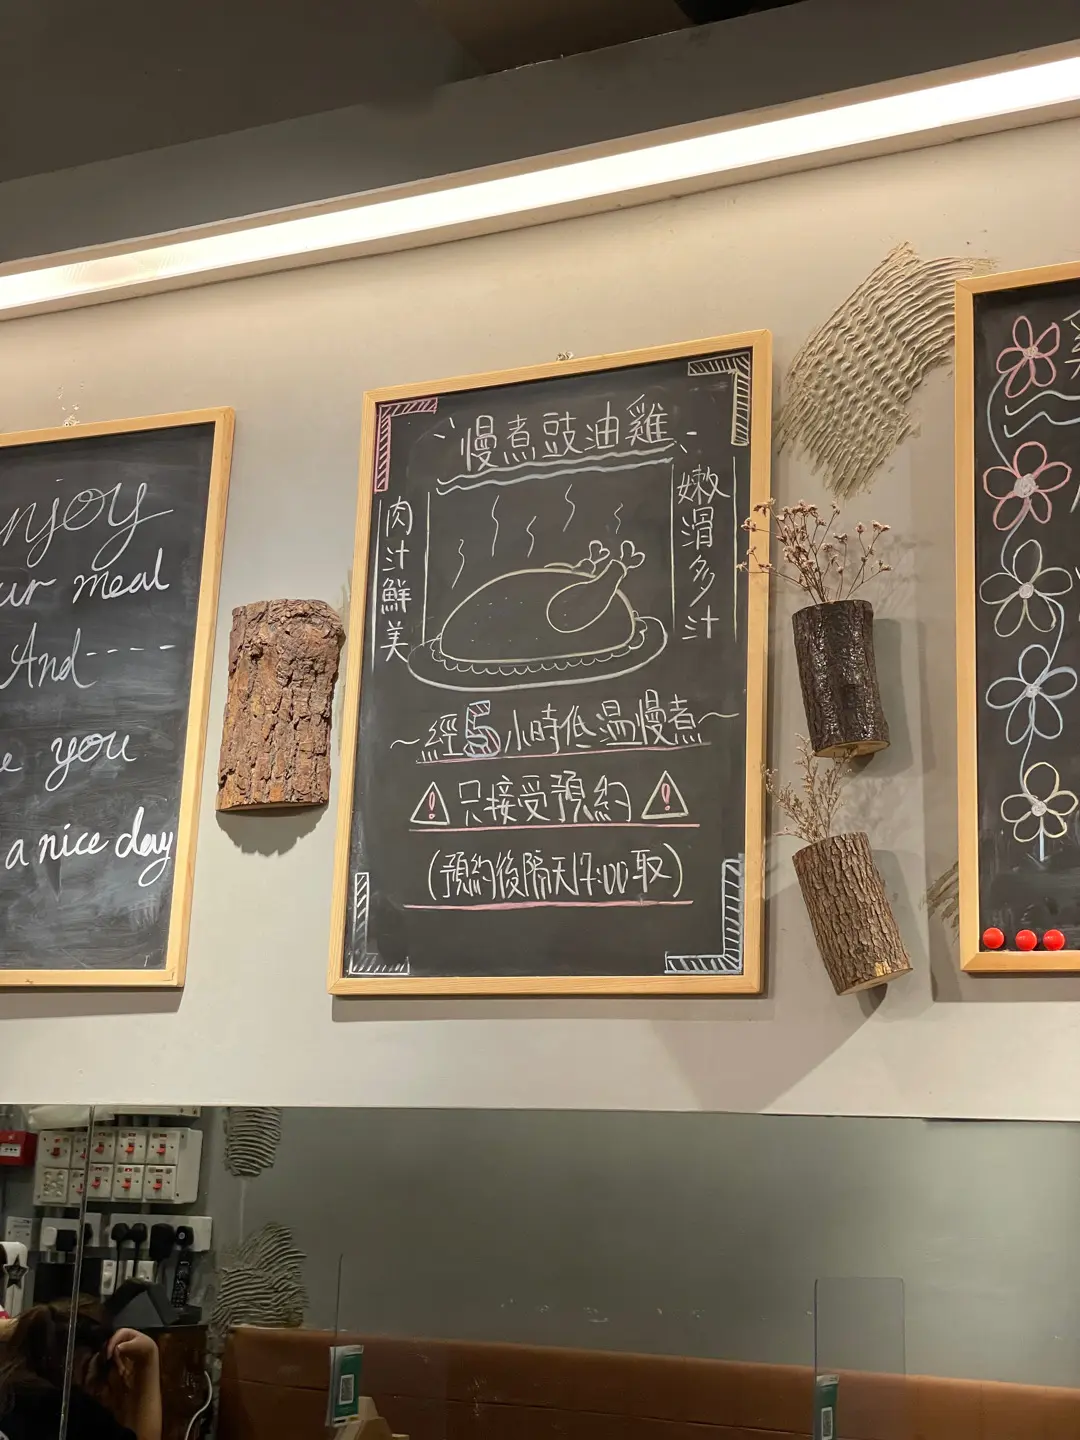 njoy
ur meal
And----
e you
a nice day
慢煮豉油雞
肉汁鮮美
嫩滑多汁
~經5小時低溫慢煮~
! 只接受預約 !
(預約後隔天17:00取)